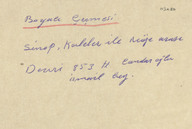 Bayat Çeşmesi
Sinop, Kaleler ile Müze arası
Devri 853 H. Candar oğlu
ismail bey.